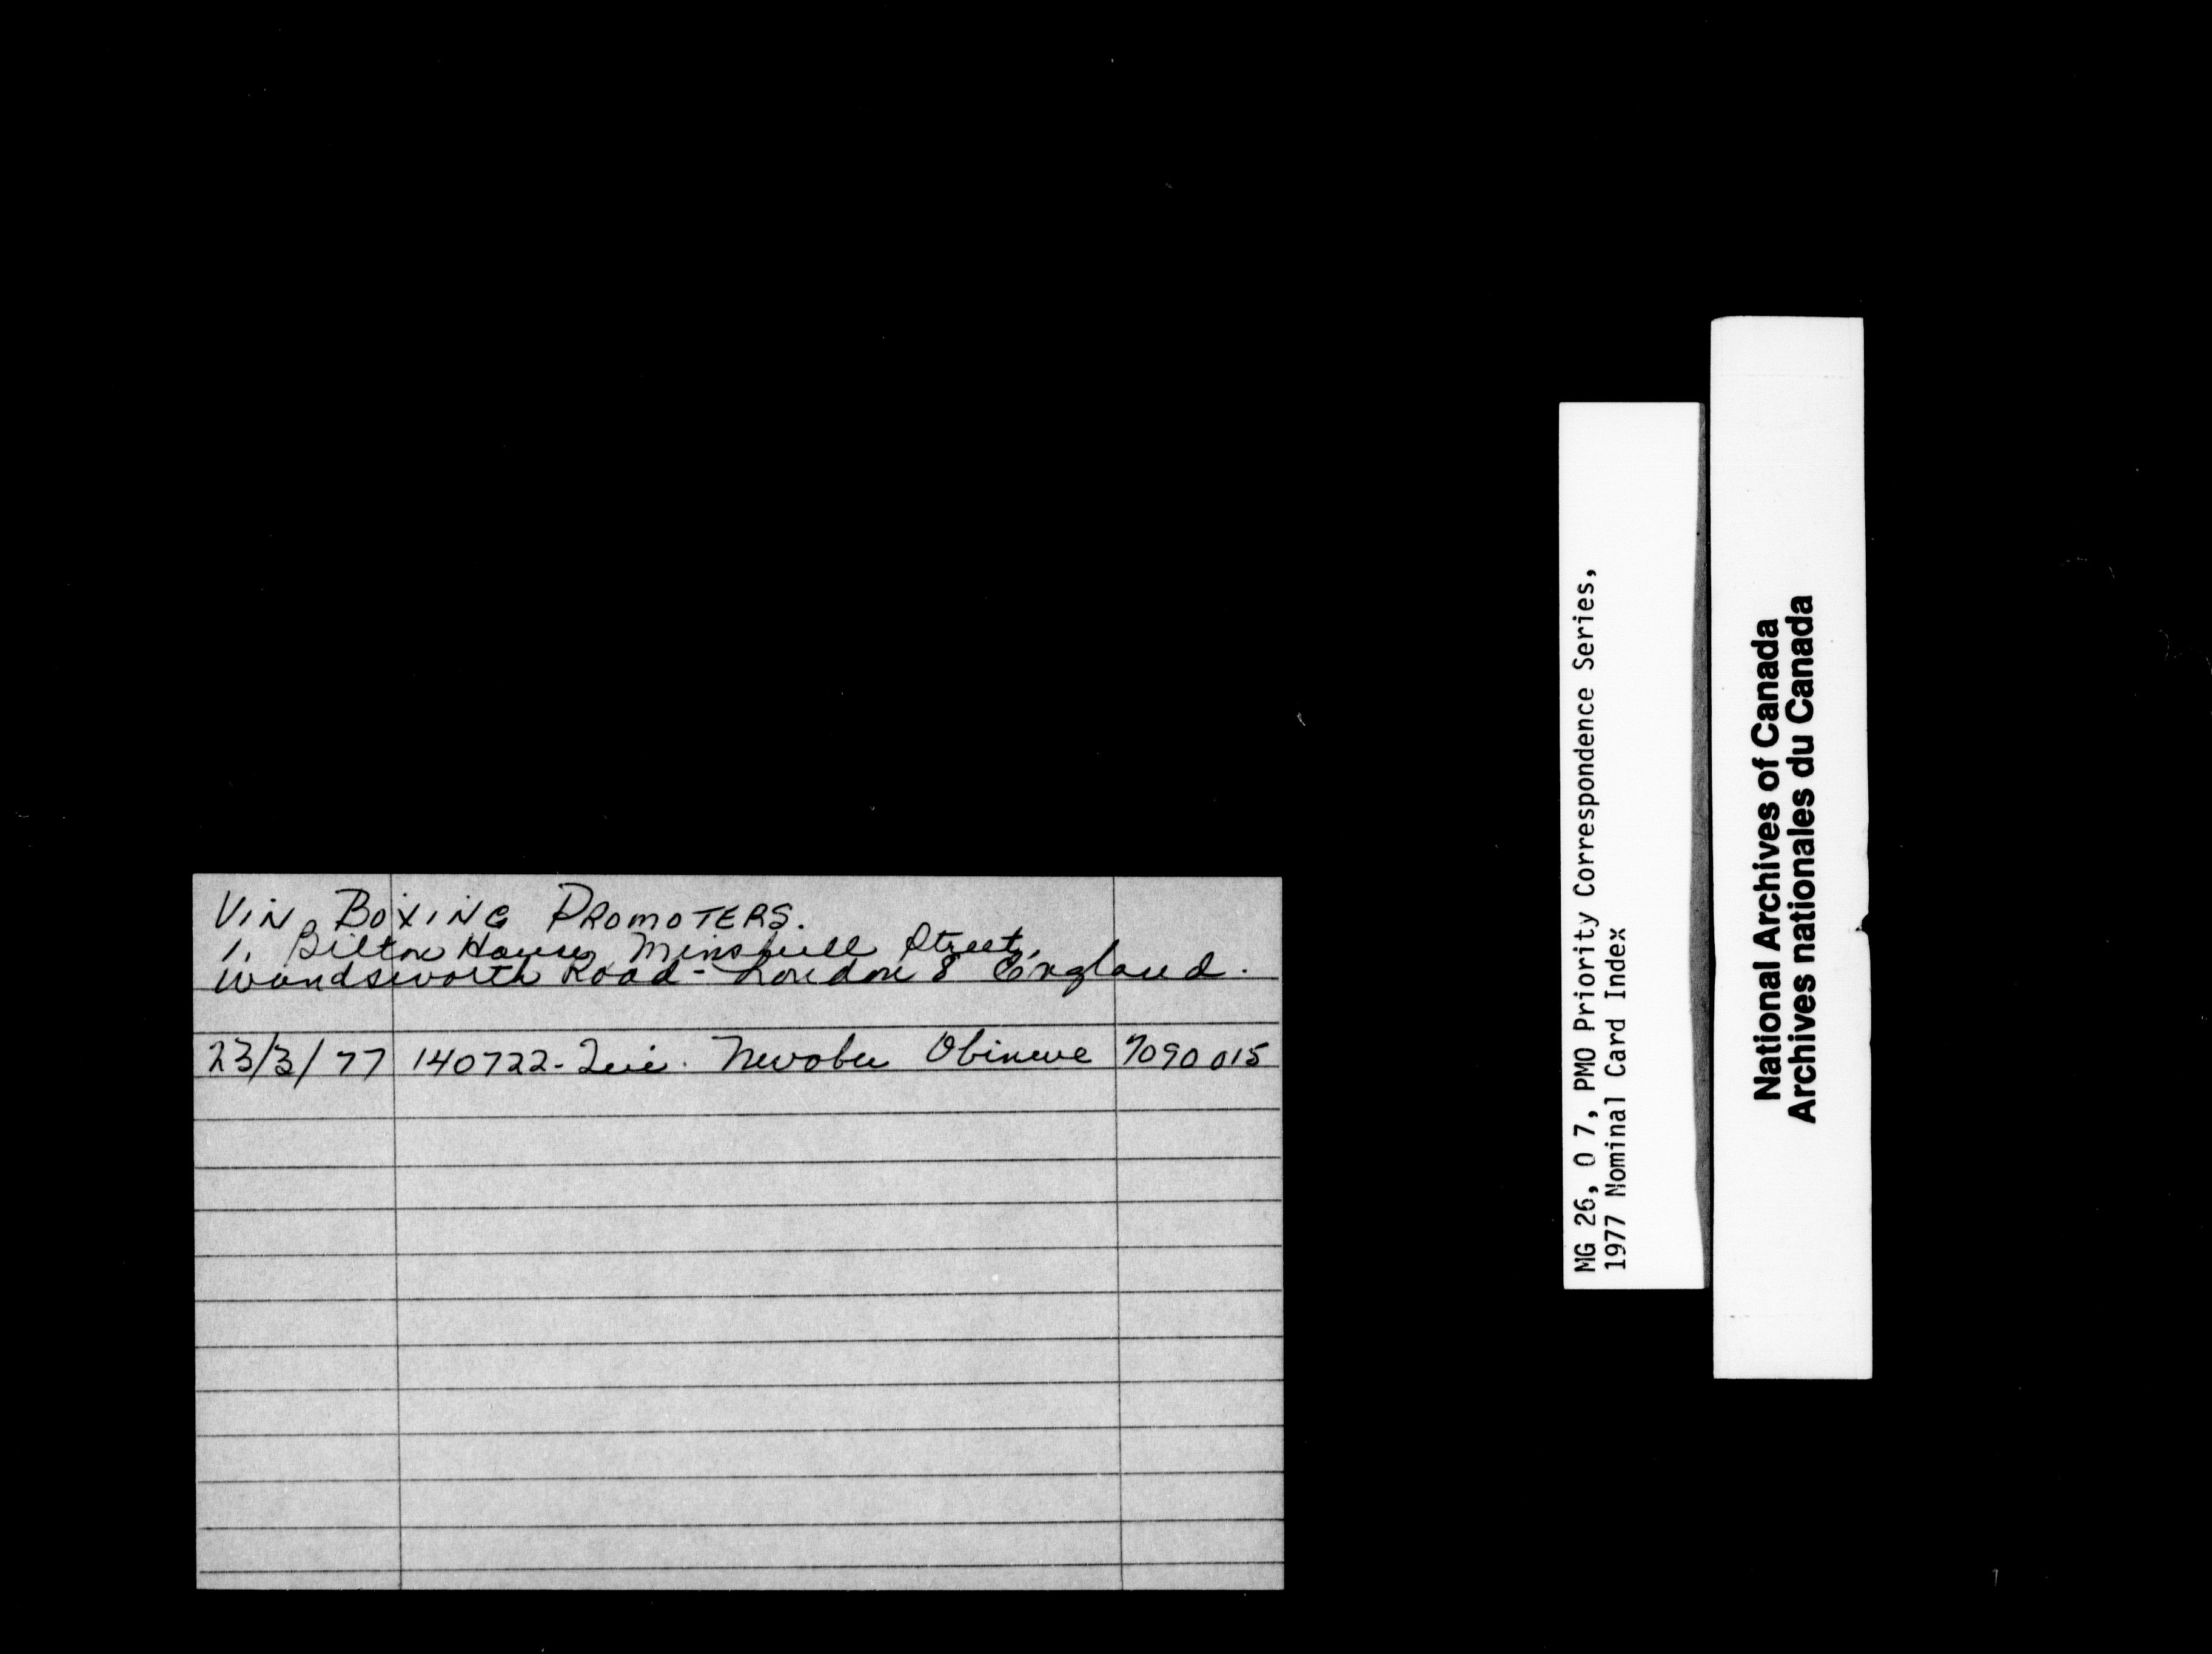 VIN BOXING PROMOTERS.
1, Bilton House, Minshull Street,
Wandsworth Road - London 8 England.
23/3/77 140722- Nwobu Obinwe 7090 015
MG 26, O 7, PMO Priority Correspondence Series,
1977 Nominal Card Index
National Archives of Canada
Archives nationales du Canada